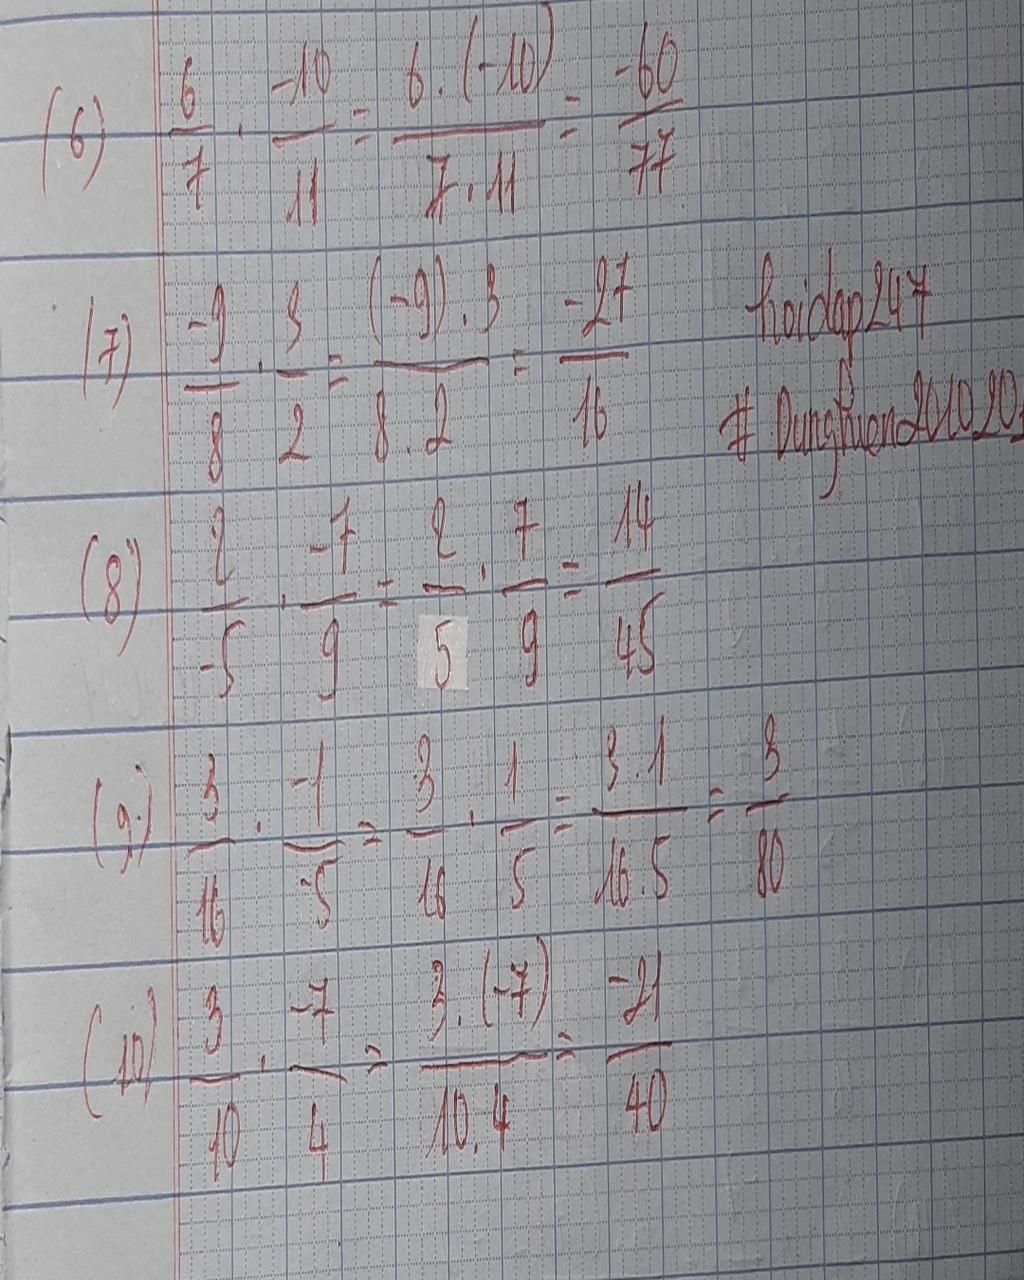 (6) 6/7 . -10/11 = 6.(-10)/7.11 = -60/77
(7) -9/8 . 3/2 = (-9).3/8.2 = -27/16
hoidap247
(8) 2/-5 . -7/9 = 2/5 . 7/9 = 14/45
(9) 3/16 . -1/-5 = 3/16 . 1/5 = 3.1/16.5 = 3/80
(10) 3/10 . -7/4 = 3.(-7)/10.4 = -21/40